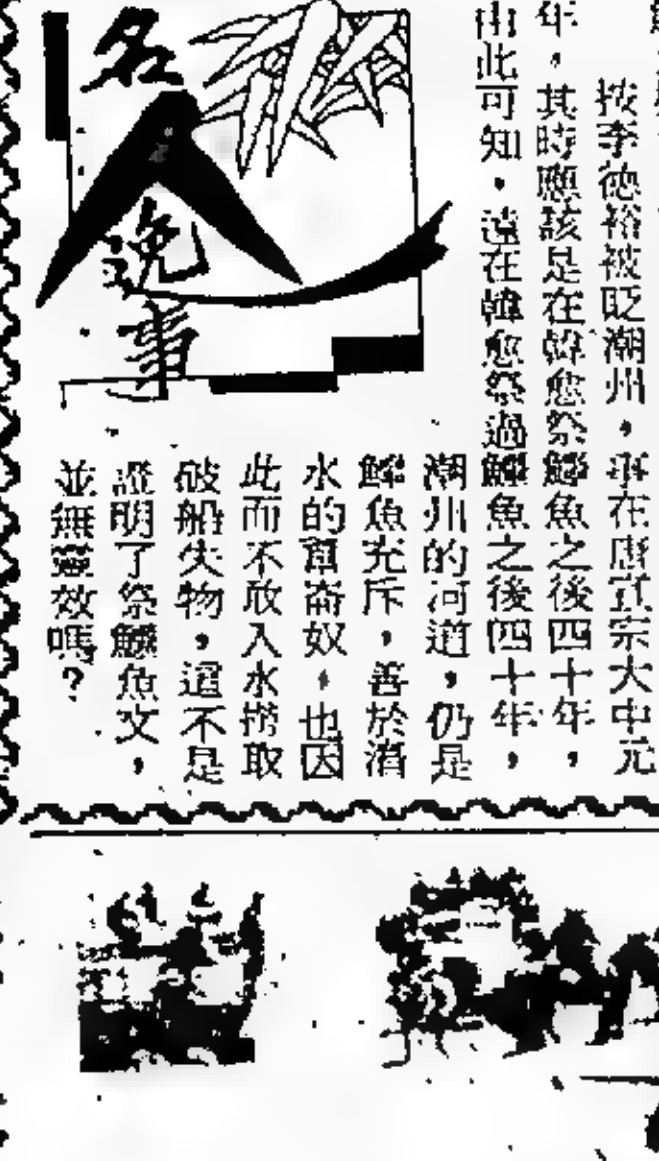 按李德裕被貶潮州,事在唐宣宗大中元
年,其時應該是在韓愈祭鱷魚之後四十年,
由此可知,遠在韓愈祭過鱷魚之後四十年,
潮州的河道,仍是
鱷魚充斥,善於潛
水的崑崙奴,也因
此而不敢入水撈取
破船失物,這不是
證明了祭鱷魚文,
並無靈效嗎?
名人逸事